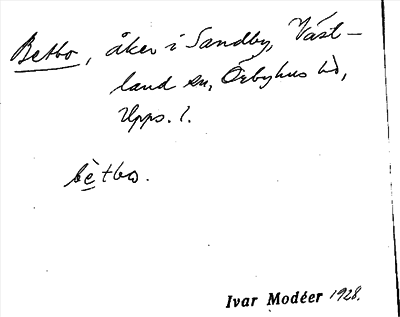 Betbo, åker i Sandby, Väst-
land sn, Örbyhus hd,
Upps. l.
bètbω.
Ivar Modéer 1928.